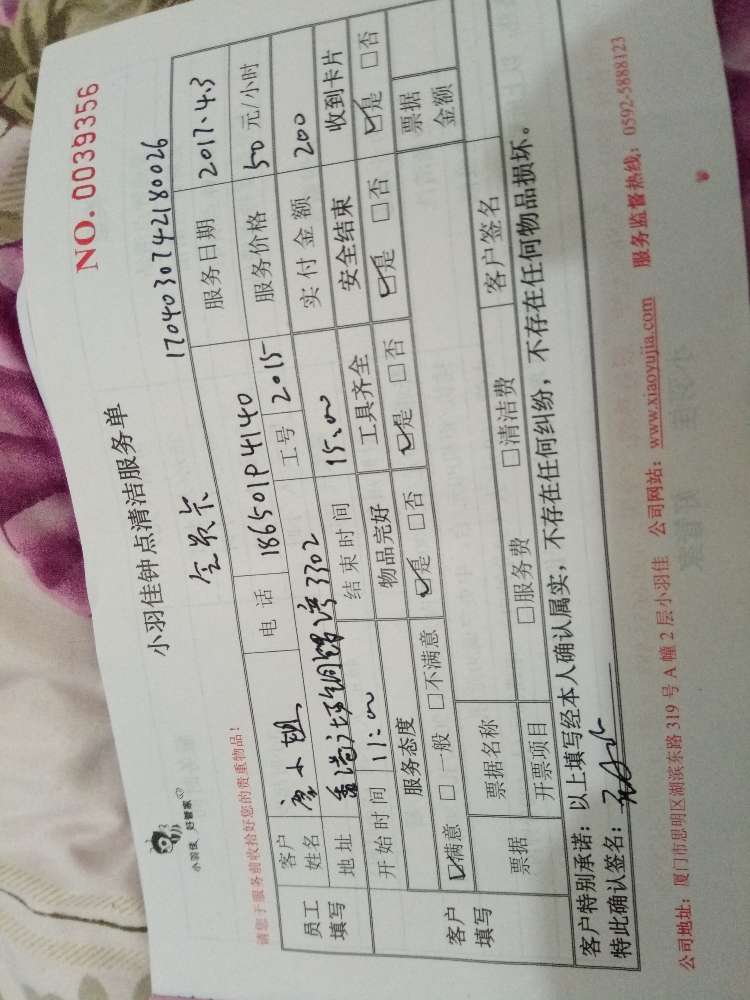 小羽佳 好管家
小羽佳钟点清洁服务单
NO. 0039356
请您于服务前收拾好您的贵重物品!
会员卡 1704030742180026
员工填写
客户姓名 小姐 电话 18650194140 服务日期 2017.4.3
地址 3302 工号 2015 服务价格 50 元/小时
开始时间 11:00 结束时间 15:00 实付金额 200
客户填写
服务态度 物品完好 工具齐全 安全结束 收到卡片
☑满意 □一般 □不满意 ☑是 □否 ☑是 □否 ☑是 □否 ☑是 □否
票据 票据名称 票据金额
开票项目 □服务费 □清洁费 客户签名
客户特别承诺:以上填写经本人确认属实,不存在任何纠纷,不存在任何物品损坏。
特此确认签名:
公司地址:厦门市思明区湖滨东路 319 号 A 幢 2 层小羽佳 公司网站:www.xiaoyujia.com 服务监督热线:0592-5888123